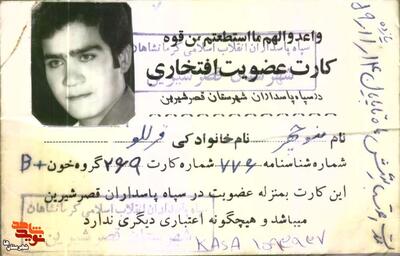 واعدوالهم ما استطعتم بن قوه
سپاه پاسداران انقلاب اسلامی کرمانشاهان
کارت عضویت افتخاری
در سپاه پاسداران شهرستان قصر شیرین
نام منوچهر نام خانوادگی
شماره شناسنامه ۷۷۶ شماره کارت ۲۶۹ گروه خون +B
این کارت بمنزله عضویت در سپاه پاسداران قصر شیرین
میباشد و هیچگونه اعتباری دیگری ندارد
سپاه پاسداران انقلاب اسلامی کرمانشاهان
KASA